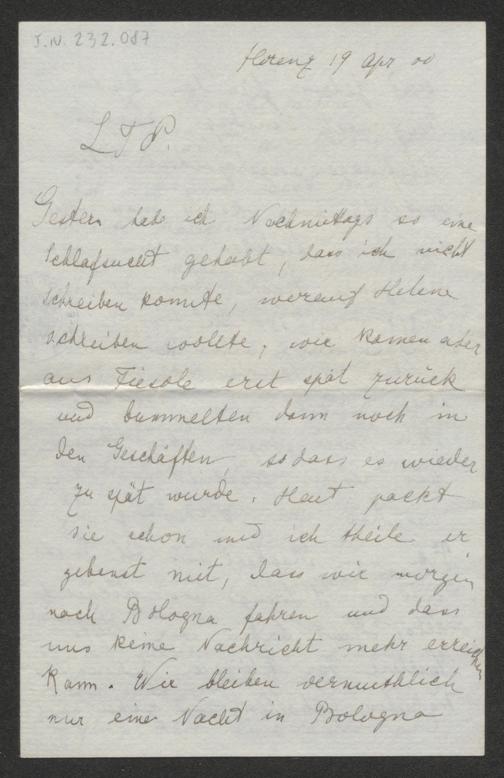 I.N. 232.087
Florenz 19 Apr 00
L T P.
Gestern habe ich Nachmittags so eine
Schlafsucht gehabt, dass ich nicht
schreiben konnte, worauf Helene
schreiben wollte, wir kamen aber
aus Fiesole erst spät zurück
und bummelten dann noch in
den Geschäften, sodass es wieder
zu spät wurde. Heut packt
sie schon und ich theile er
gebenst mit, dass wir morgen
nach Bologna fahren und dass
uns keine Nachricht mehr erreichen
kann. Wir bleiben vermuthlich
nur eine Nacht in Bologna